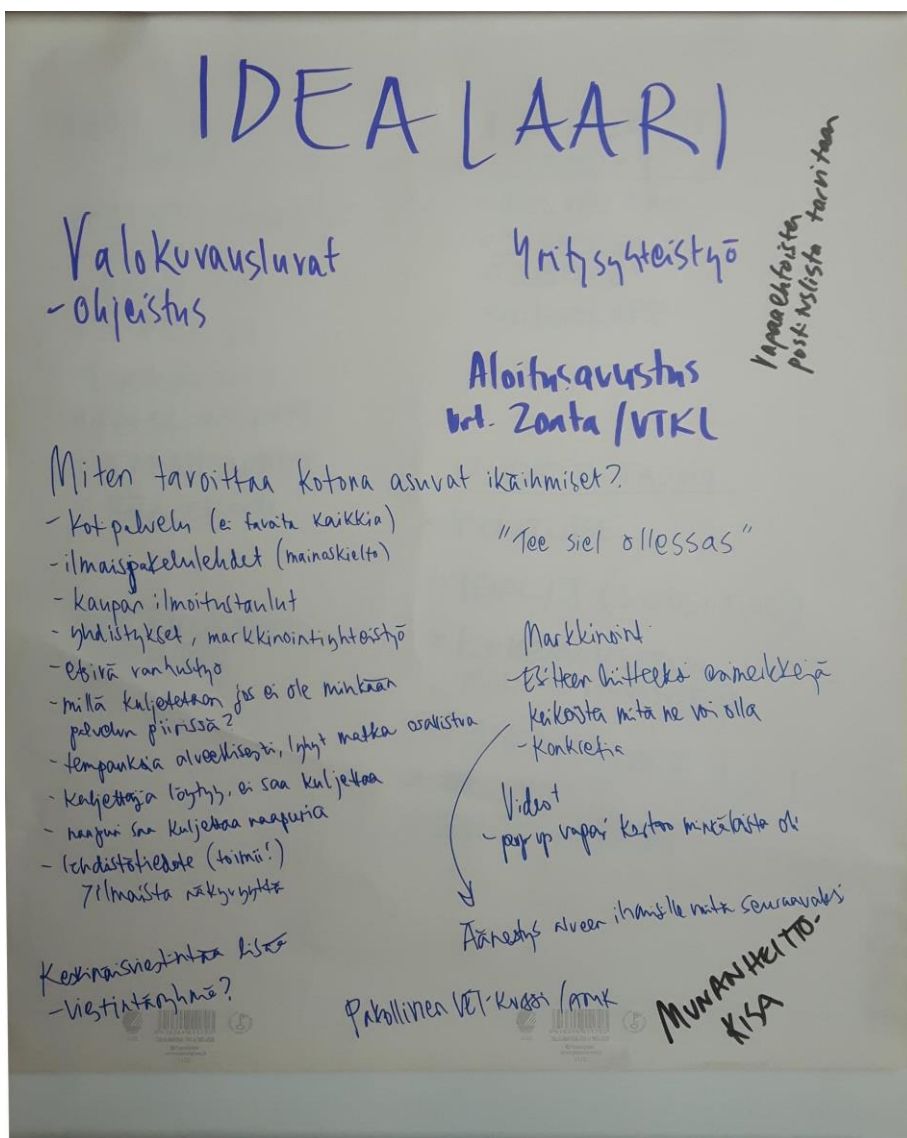 IDEALAARI
Valokuvausluvat
- Ohjeistus
Yritysyhteistyö
Vapaaehtoisten
postituslista tarvitaan
Aloitusavustus
vrt. Zonta / VTKL
Miten tavoittaa kotona asuvat ikäihmiset?
- Kotipalvelu (ei tavoita kaikkia)
- ilmaisjakelulehdet (mainoskielto)
- kaupan ilmoitustaulut
- yhdistykset, markkinointiyhteistyö
- etsivä vanhustyö
- millä kuljetetaan jos ei ole minkään
palvelun piirissä?
- tempauksia alueellisesti, lyhyt matka osallistua
- kuljettaja löytyy, ei saa kuljettaa
- naapuri saa kuljettaa naapuria
- lehdistötiedote (toimii!)
ilmaista näkyvyyttä
Keskinäisviestintää lisää
- viestintäryhmä?
"Tee siel ollessas"
Markkinointi
- Esitteen liitteeksi esimerkkejä
keikoista mitä ne voi olla
- konkretia
Videot
- pop up vapari kertoo minkälaista oli
Äänestys alueen ihmisille mitä seuraavaksi
Pakollinen VET-kurssi / AMK
MUNANHEITTO-
KISA